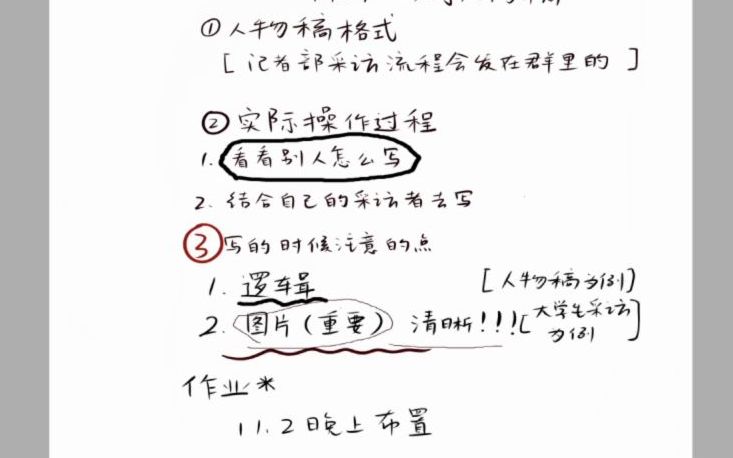 ① 人物稿格式
[ 记者部采访流程会发在群里的 ]
② 实际操作过程
1. 看看别人怎么写
2. 结合自己的采访者去写
③ 写的时候注意的点
1. 逻辑 [人物稿为例]
2. 图片(重要) 清晰!!! [大学生采访为例]
作业*
11.2晚上布置